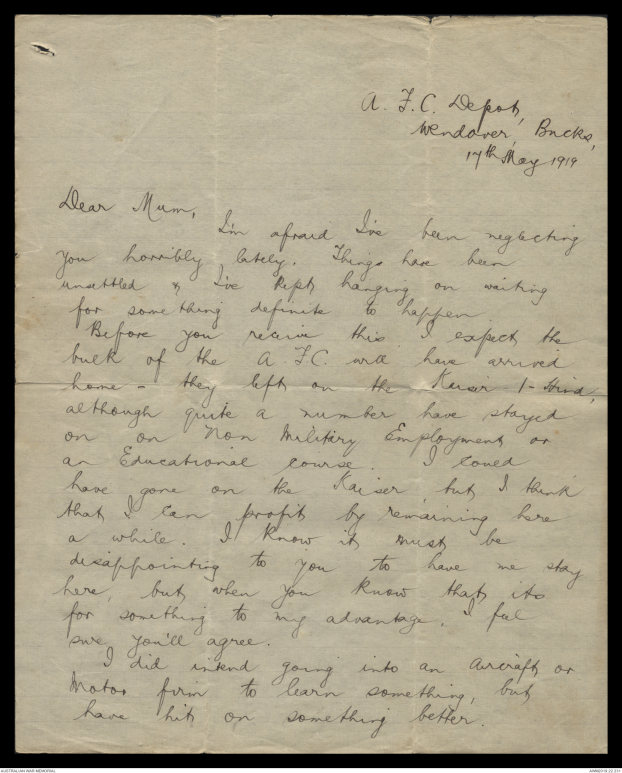 A. F. C. Depot,
Wendover, Bucks,
17th May 1919
Dear Mum,
I'm afraid I've been neglecting
you horribly lately. Things have been
unsettled & I've kept hanging on waiting
for something definite to happen
Before you receive this I expect the
bulk of the A F.C. will have arrived
home - they left on the Kaiser-I-Hind,
although quite a number have stayed
on on Non Military Employment or
an Educational course. I could
have gone on the Kaiser, but I think
that I can profit by remaining here
a while. I know it must be
disappointing to you to have me stay
here, but when you know that its
for something to my advantage, I feel
sure you'll agree.
I did intend going into an Aircraft or
Motor firm to learn something, but
have hit on something better.
AUSTRALIAN WAR MEMORIAL